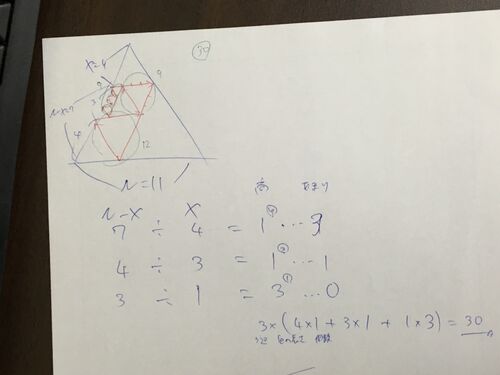 30
x=4
n-x=7
9
3
4
12
n=11
商 あまり
n-x x
7 ÷ 4 = 1④ … 3
4 ÷ 3 = 1② … 1
3 ÷ 1 = 3① … 0
3×(4×1 + 3×1 + 1×3) = 30
3辺 個数